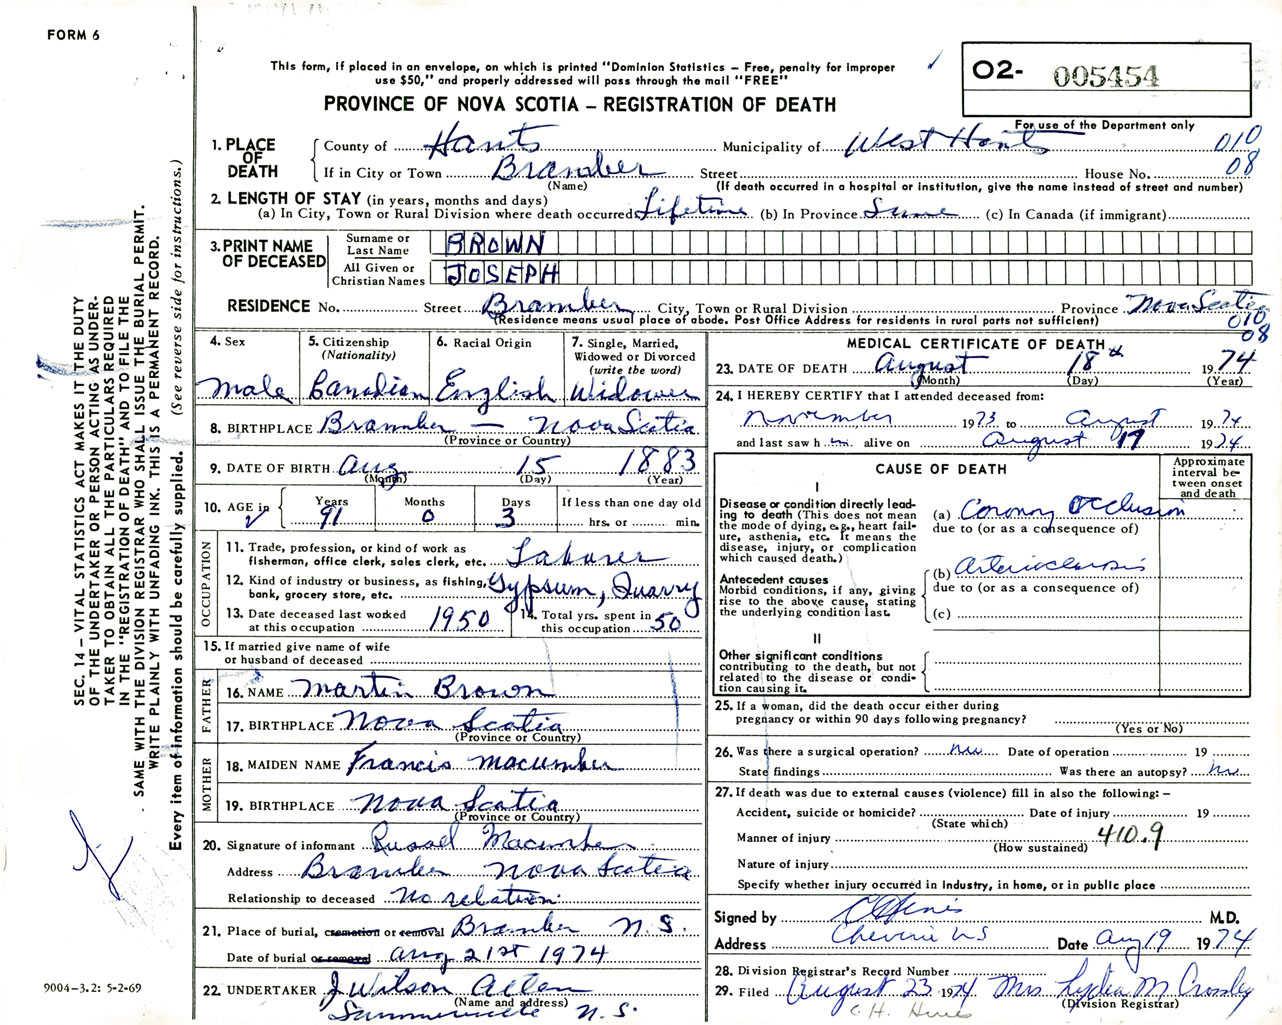 FORM 6
This form, if placed in an envelope, on which is printed "Dominion Statistics – Free, penalty for improper
use $50," and properly addressed will pass through the mail "FREE"
PROVINCE OF NOVA SCOTIA – REGISTRATION OF DEATH
O2- 005454
For use of the Department only
1. PLACE OF DEATH County of Hants Municipality of West Hants 010
If in City or Town Bramber Street House No. 08
(Name) (If death occurred in a hospital or institution, give the name instead of street and number)
2. LENGTH OF STAY (in years, months and days)
(a) In City, Town or Rural Division where death occurred Lifetime (b) In Province Same (c) In Canada (if immigrant)
3. PRINT NAME OF DECEASED
Surname or Last Name BROWN
All Given or Christian Names JOSEPH
RESIDENCE No. Street Bramber City, Town or Rural Division Province Nova Scotia
(Residence means usual place of abode. Post Office Address for residents in rural parts not sufficient) 010
08
4. Sex Male
5. Citizenship (Nationality) Canadian
6. Racial Origin English
7. Single, Married, Widowed or Divorced (write the word) Widower
8. BIRTHPLACE Bramber – Nova Scotia
(Province or Country)
9. DATE OF BIRTH Aug 15 1883
(Month) (Day) (Year)
10. AGE in Years 91 Months 0 Days 3 If less than one day old hrs. or min.
OCCUPATION
11. Trade, profession, or kind of work as
fisherman, office clerk, sales clerk, etc. Laborer
12. Kind of industry or business, as fishing,
bank, grocery store, etc. Gypsum, Quarry
13. Date deceased last worked
at this occupation 1950
14. Total yrs. spent in
this occupation 50
15. If married give name of wife
or husband of deceased
FATHER
16. NAME Martin Brown
17. BIRTHPLACE Nova Scotia
(Province or Country)
MOTHER
18. MAIDEN NAME Francis Macumber
19. BIRTHPLACE Nova Scotia
(Province or Country)
20. Signature of informant Russel Macumber
Address Bramber Nova Scotia
Relationship to deceased No relation
21. Place of burial, cremation or removal Bramber N.S.
Date of burial or removal Aug 21st 1974
22. UNDERTAKER J Wilson Allen
(Name and address)
Summerville N.S.
MEDICAL CERTIFICATE OF DEATH
23. DATE OF DEATH August 18th 1974
(Month) (Day) (Year)
24. I HEREBY CERTIFY that I attended deceased from:
November 1973 to August 1974
and last saw h im alive on August 17 1974
CAUSE OF DEATH
Approximate interval between onset and death
I
Disease or condition directly lead-
ing to death (This does not mean
the mode of dying, e.g., heart fail-
ure, asthenia, etc. It means the
disease, injury, or complication
which caused death.)
(a) Coronary Occlusion
due to (or as a consequence of)
Antecedent causes
Morbid conditions, if any, giving
rise to the above cause, stating
the underlying condition last.
(b) Arteriosclerosis
due to (or as a consequence of)
(c)
II
Other significant conditions
contributing to the death, but not
related to the disease or condi-
tion causing it.
25. If a woman, did the death occur either during
pregnancy or within 90 days following pregnancy?
(Yes or No)
26. Was there a surgical operation? no Date of operation 19
State findings Was there an autopsy? no
27. If death was due to external causes (violence) fill in also the following: –
Accident, suicide or homicide? Date of injury 19
(State which)
Manner of injury 410.9
(How sustained)
Nature of injury
Specify whether injury occurred in industry, in home, or in public place
Signed by M.D.
Address Cheverie NS Date Aug 19 1974
28. Division Registrar's Record Number
29. Filed August 23 1974 Mrs Lydia M Crossley
(Division Registrar)
C.H. Hines
SEC. 14 – VITAL STATISTICS ACT MAKES IT THE DUTY
OF THE UNDERTAKER OR PERSON ACTING AS UNDER-
TAKER TO OBTAIN ALL THE PARTICULARS REQUIRED
IN THE "REGISTRATION OF DEATH" AND TO FILE THE
SAME WITH THE DIVISION REGISTRAR WHO SHALL ISSUE THE BURIAL PERMIT.
WRITE PLAINLY WITH UNFADING INK. THIS IS A PERMANENT RECORD.
Every item of information should be carefully supplied. (See reverse side for instructions.)
9004-3.2: 5-2-69